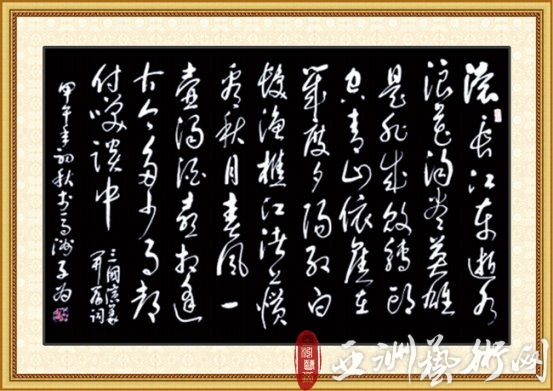 滚滚长江东逝水
浪花淘尽英雄
是非成败转头
空青山依旧在
几度夕阳红白
发渔樵江渚上惯
看秋月春风一
壶浊酒喜相逢
古今多少事都
付笑谈中
三国演义
开篇词
甲午年初秋书于
亚洲藝術网